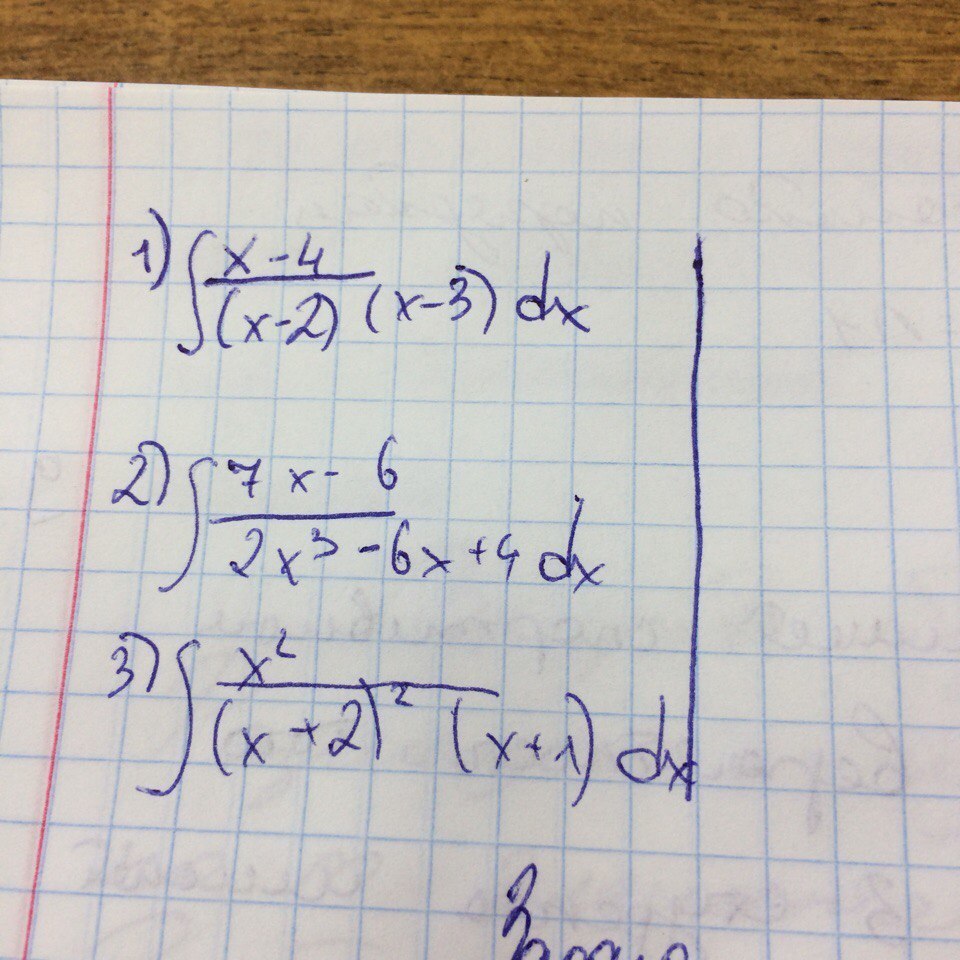 1) ∫ x-4 / (x-2) (x-3) dx
2) ∫ 7x - 6 / 2x³ - 6x + 4 dx
3) ∫ x² / (x+2)² (x+1) dx